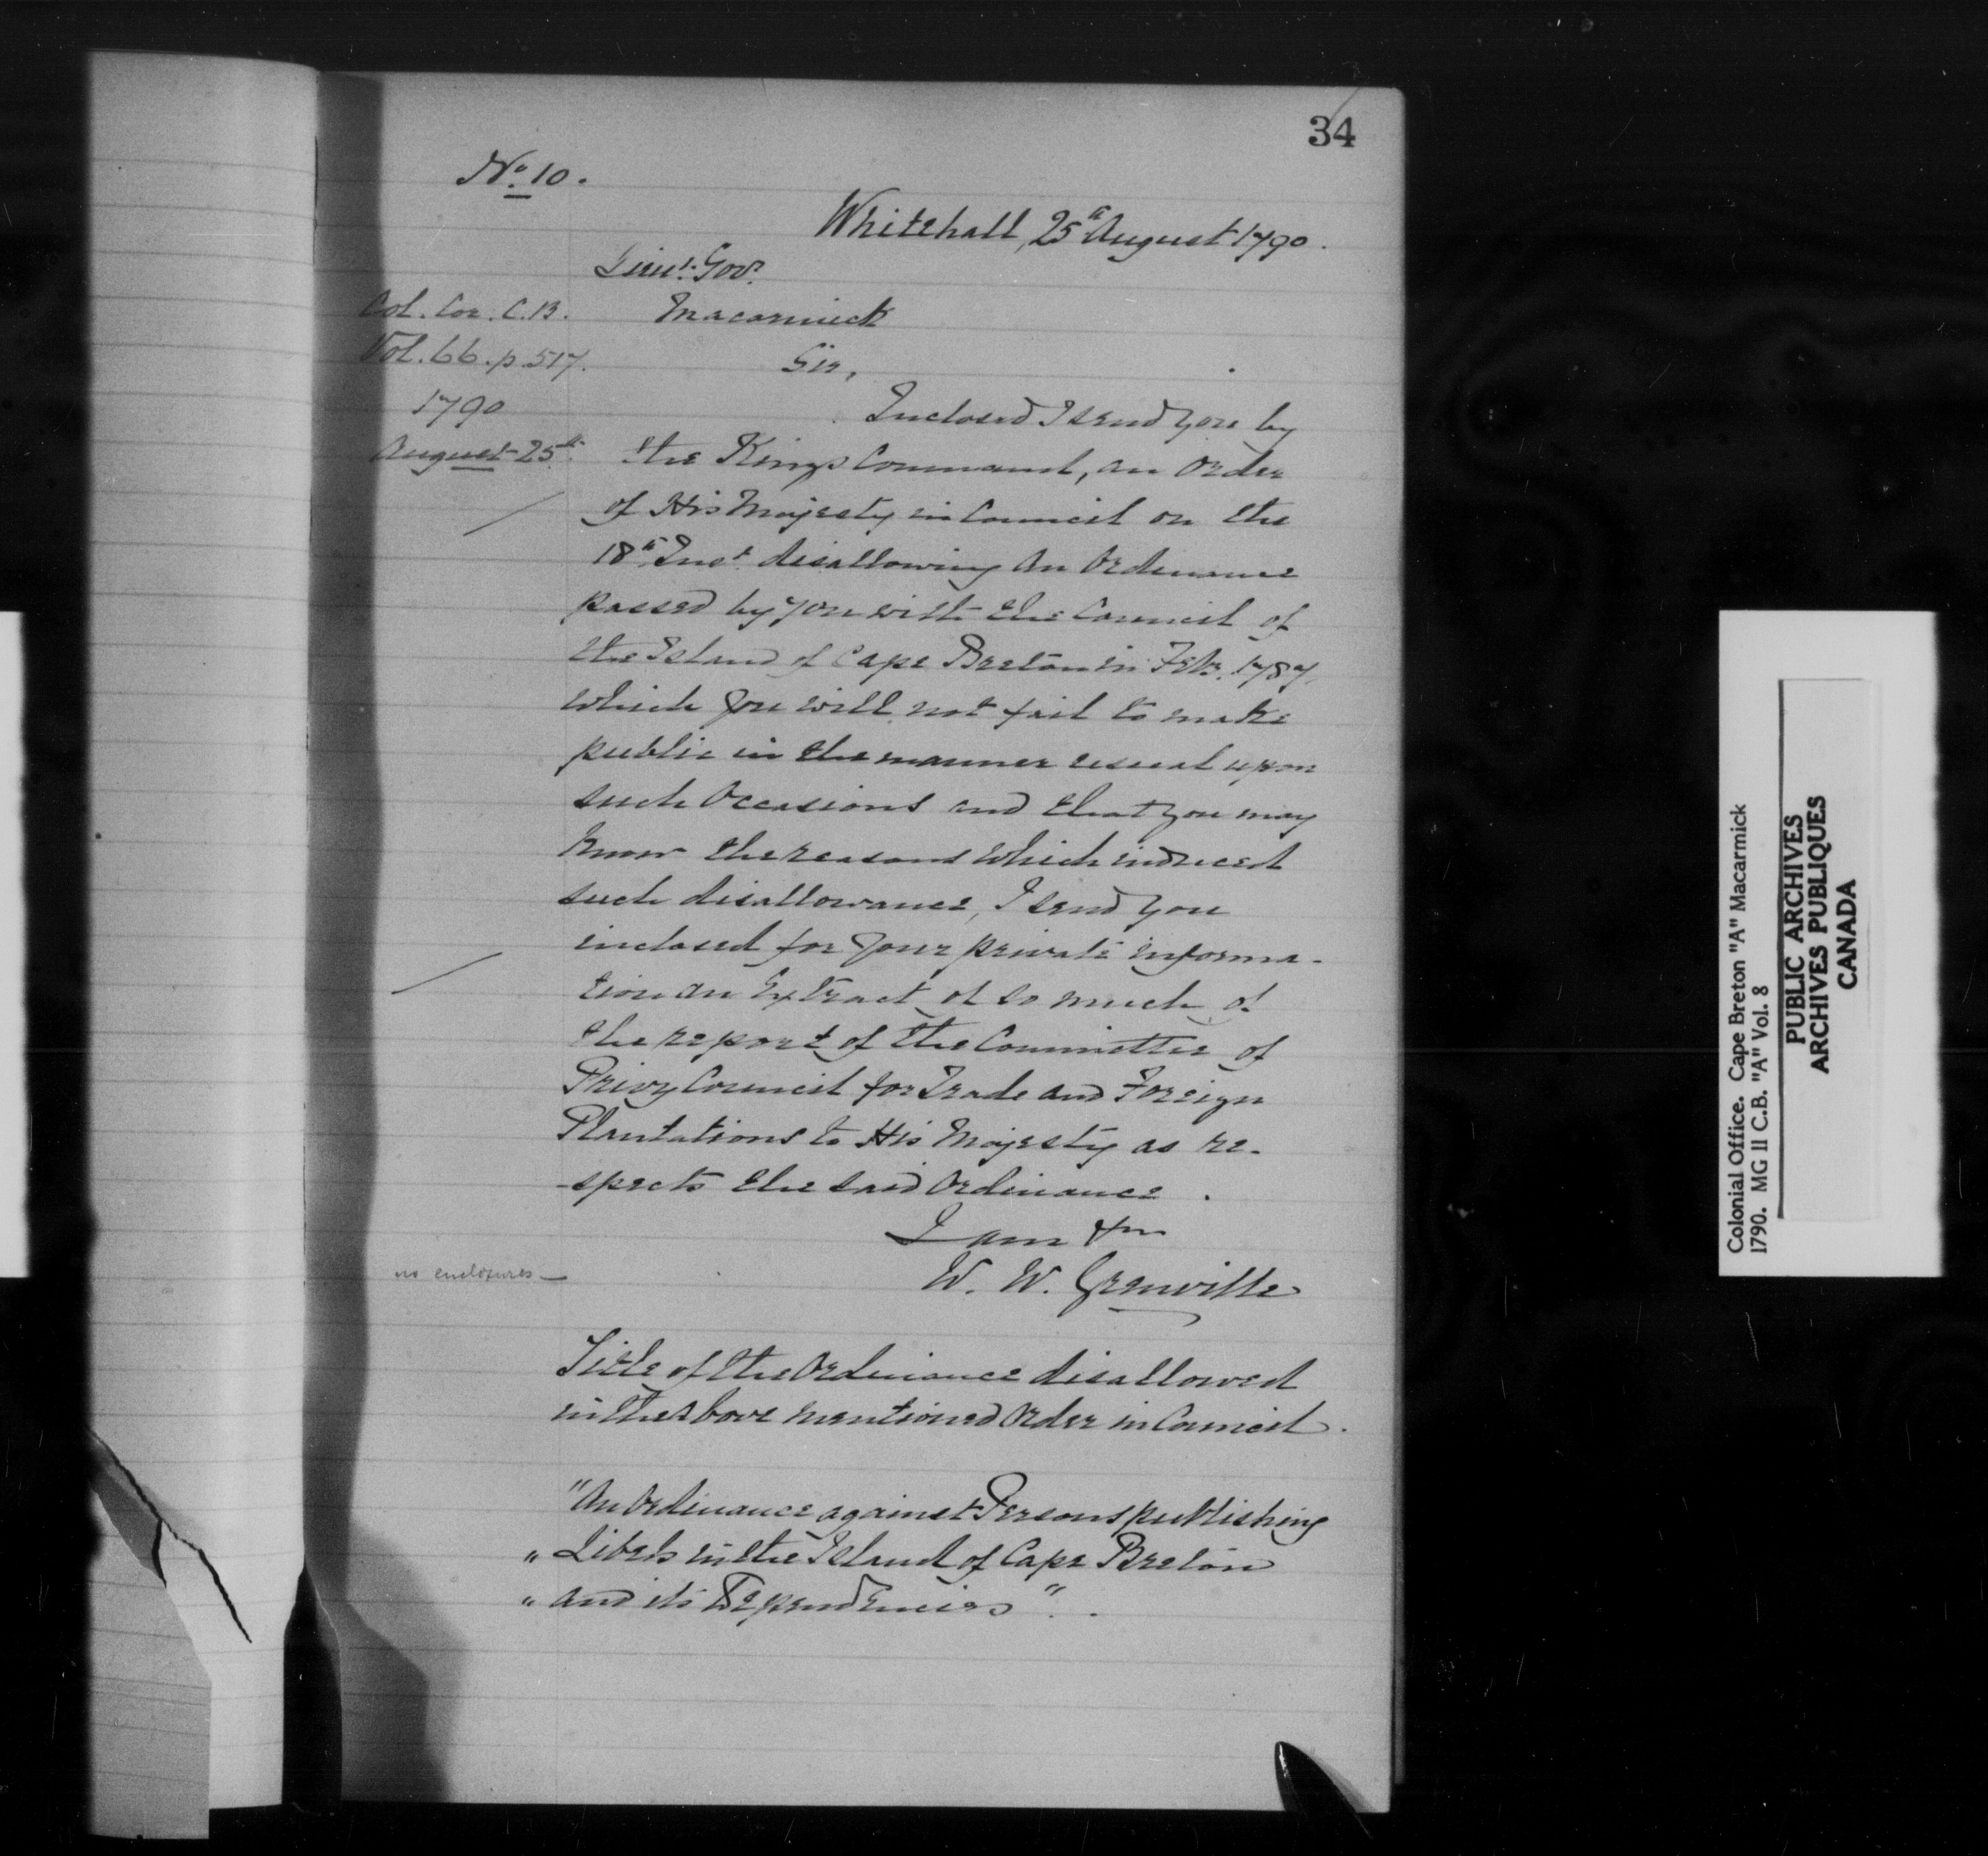 34
No. 10.
Whitehall, 25th August 1790.
Lieut. Govr.
Macormick
Col. Cor. C.B.
Vol. 66. p. 517.
1790
August 25th.
Sir,
Inclosed I send you by
the Kings Command, an Order
of His Majesty in Council on the
18th Inst. disallowing An Ordinance
passed by you with the Council of
the Island of Cape Breton in Feb. 1787,
which you will not fail to make
public in the manner usual upon
such Occasions and that you may
know the reasons which induced
such disallowance, I send you
inclosed for your private informa-
tion an Extract of so much of
the report of the Committee of
Privy Council for Trade and Foreign
Plantations to His Majesty as re-
-spects the said Ordinance.
I am &c
W. W. Grenville
no enclosures—
Title of the Ordinance disallowed
in the above mentioned Order in Council.
"An Ordinance against Persons publishing
" Libels in the Island of Cape Breton
" and its Dependencies".
Colonial Office. Cape Breton "A" Macarmick
1790. MG II C.B. "A" Vol. 8
PUBLIC ARCHIVES
ARCHIVES PUBLIQUES
CANADA